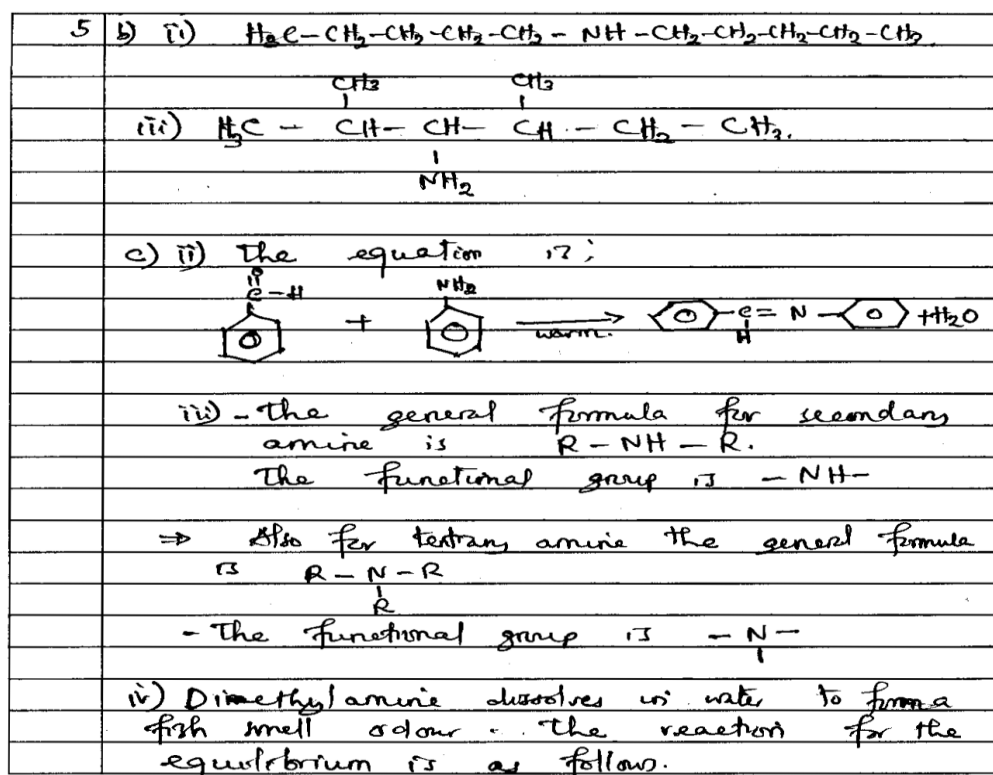 5 b) ii) H3C-CH2-CH2-CH2-CH2-NH-CH2-CH2-CH2-CH2-CH2
CH3 CH3
iii) H3C - CH - CH - CH - CH2 - CH3.
NH2
c) ii) The equation is;
O
C-H NH2
+ warm. C = N +H2O
H
iii) - The general formula for secondary
amine is R - NH - R.
The functional group is - NH-
⇒ Also for tertrary amine the general formula
is R - N - R
R
- The functional group is - N -
iv) Dimethylamine dissolves in water to form a
fish smell odour. The reaction for the
equilibrium is as follows.